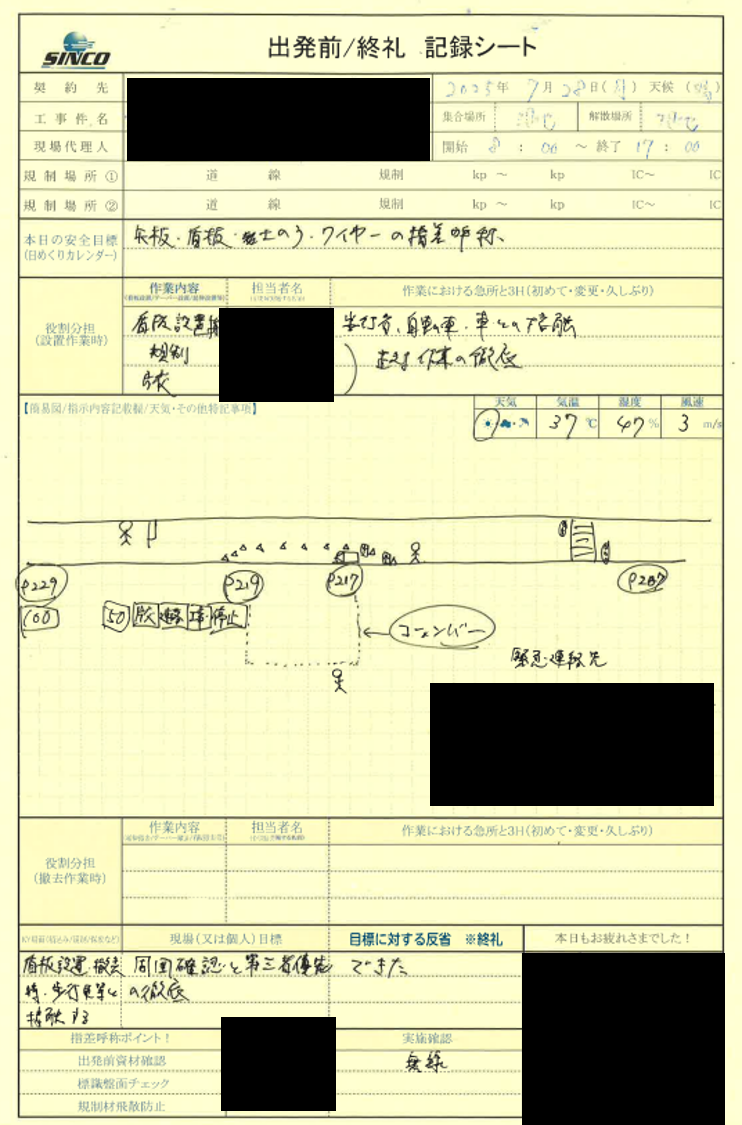 SINCO
出発前/終礼 記録シート
契約先
2025年 7月 28日(月) 天候(晴)
工事件名
集合場所 現地 解散場所 現地
現場代理人
開始 8:00 ～ 終了 17:00
規制場所① 道 線 規制 kp ～ kp IC～ IC
規制場所② 道 線 規制 kp ～ kp IC～ IC
本日の安全目標
(日めくりカレンダー)
矢板・看板・
ワイヤーの指差呼称、
役割分担
(設置作業時)
作業内容 担当者名 作業における急所と3H(初めて・変更・久しぶり)
看板設置
歩行者、自転車・車との接触
規制
作業の徹底
【簡易図/指示内容記載欄/天気・その他特記事項】
天気 気温 湿度 風速
37℃ 47% 3 m/s
P229 P219 P217 P207
100 50 停止
コーンバー
緊急連絡先
役割分担
(撤去作業時)
作業内容 担当者名 作業における急所と3H(初めて・変更・久しぶり)
現場(又は個人)目標 目標に対する反省 ※終礼 本日もお疲れさまでした！
看板設置・撤去 周囲確認と第三者優先 できた
時・歩行者等と の徹底
接触する
指差呼称ポイント！ 実施確認
出発前資材確認 無線
標識盤面チェック
規制材飛散防止